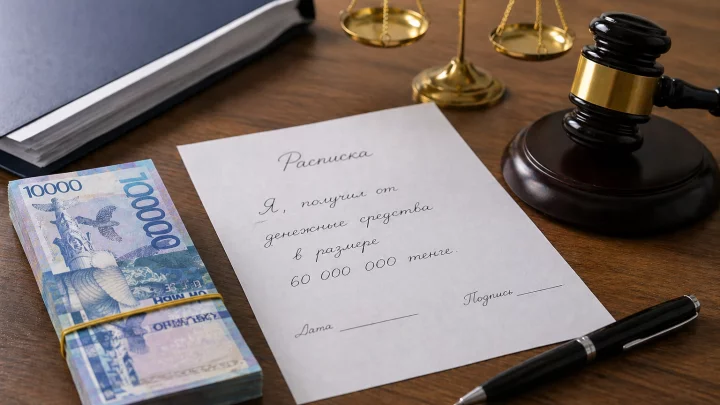 10000
Расписка
Я, получил от
денежные средства
в размере
60 000 000 тенге.
Подпись
Дата